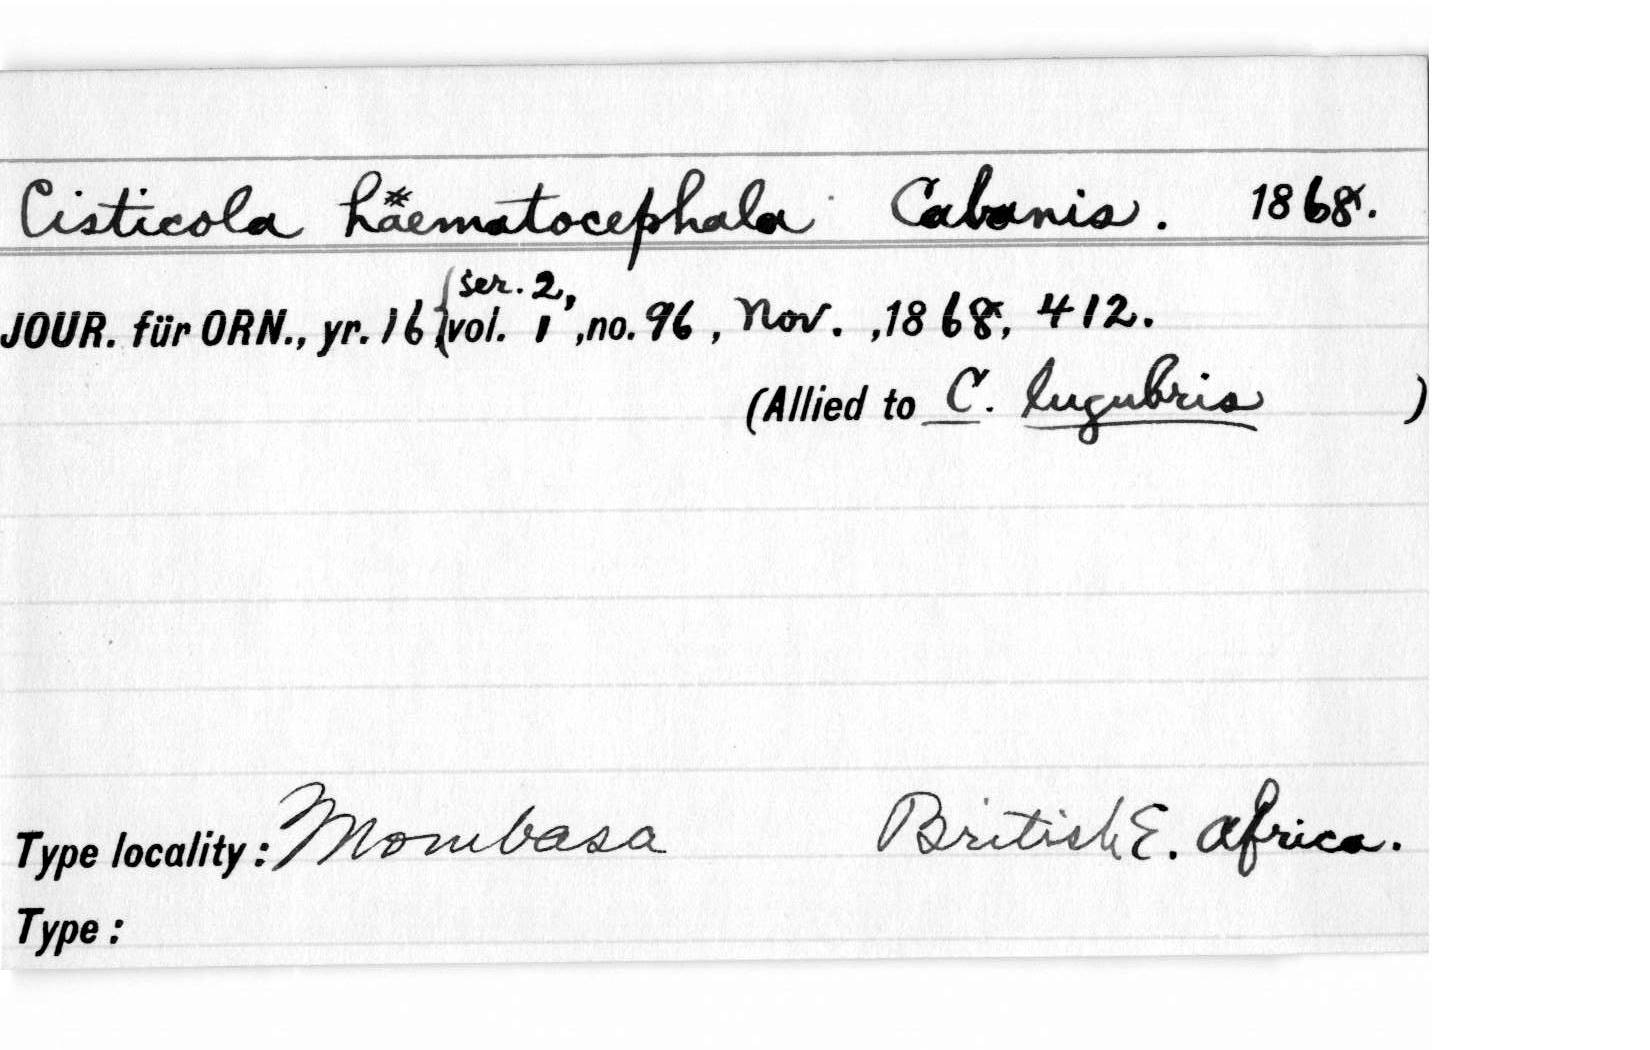 Cisticola häematocephala Cabanis. 1868.
ser. 2,
JOUR. für ORN., yr. 16 (vol. 1 ,no. 96 , Nov. ,1868, 412.
(Allied to C. lugubris )
Type locality: Mombasa British E. Africa.
Type: